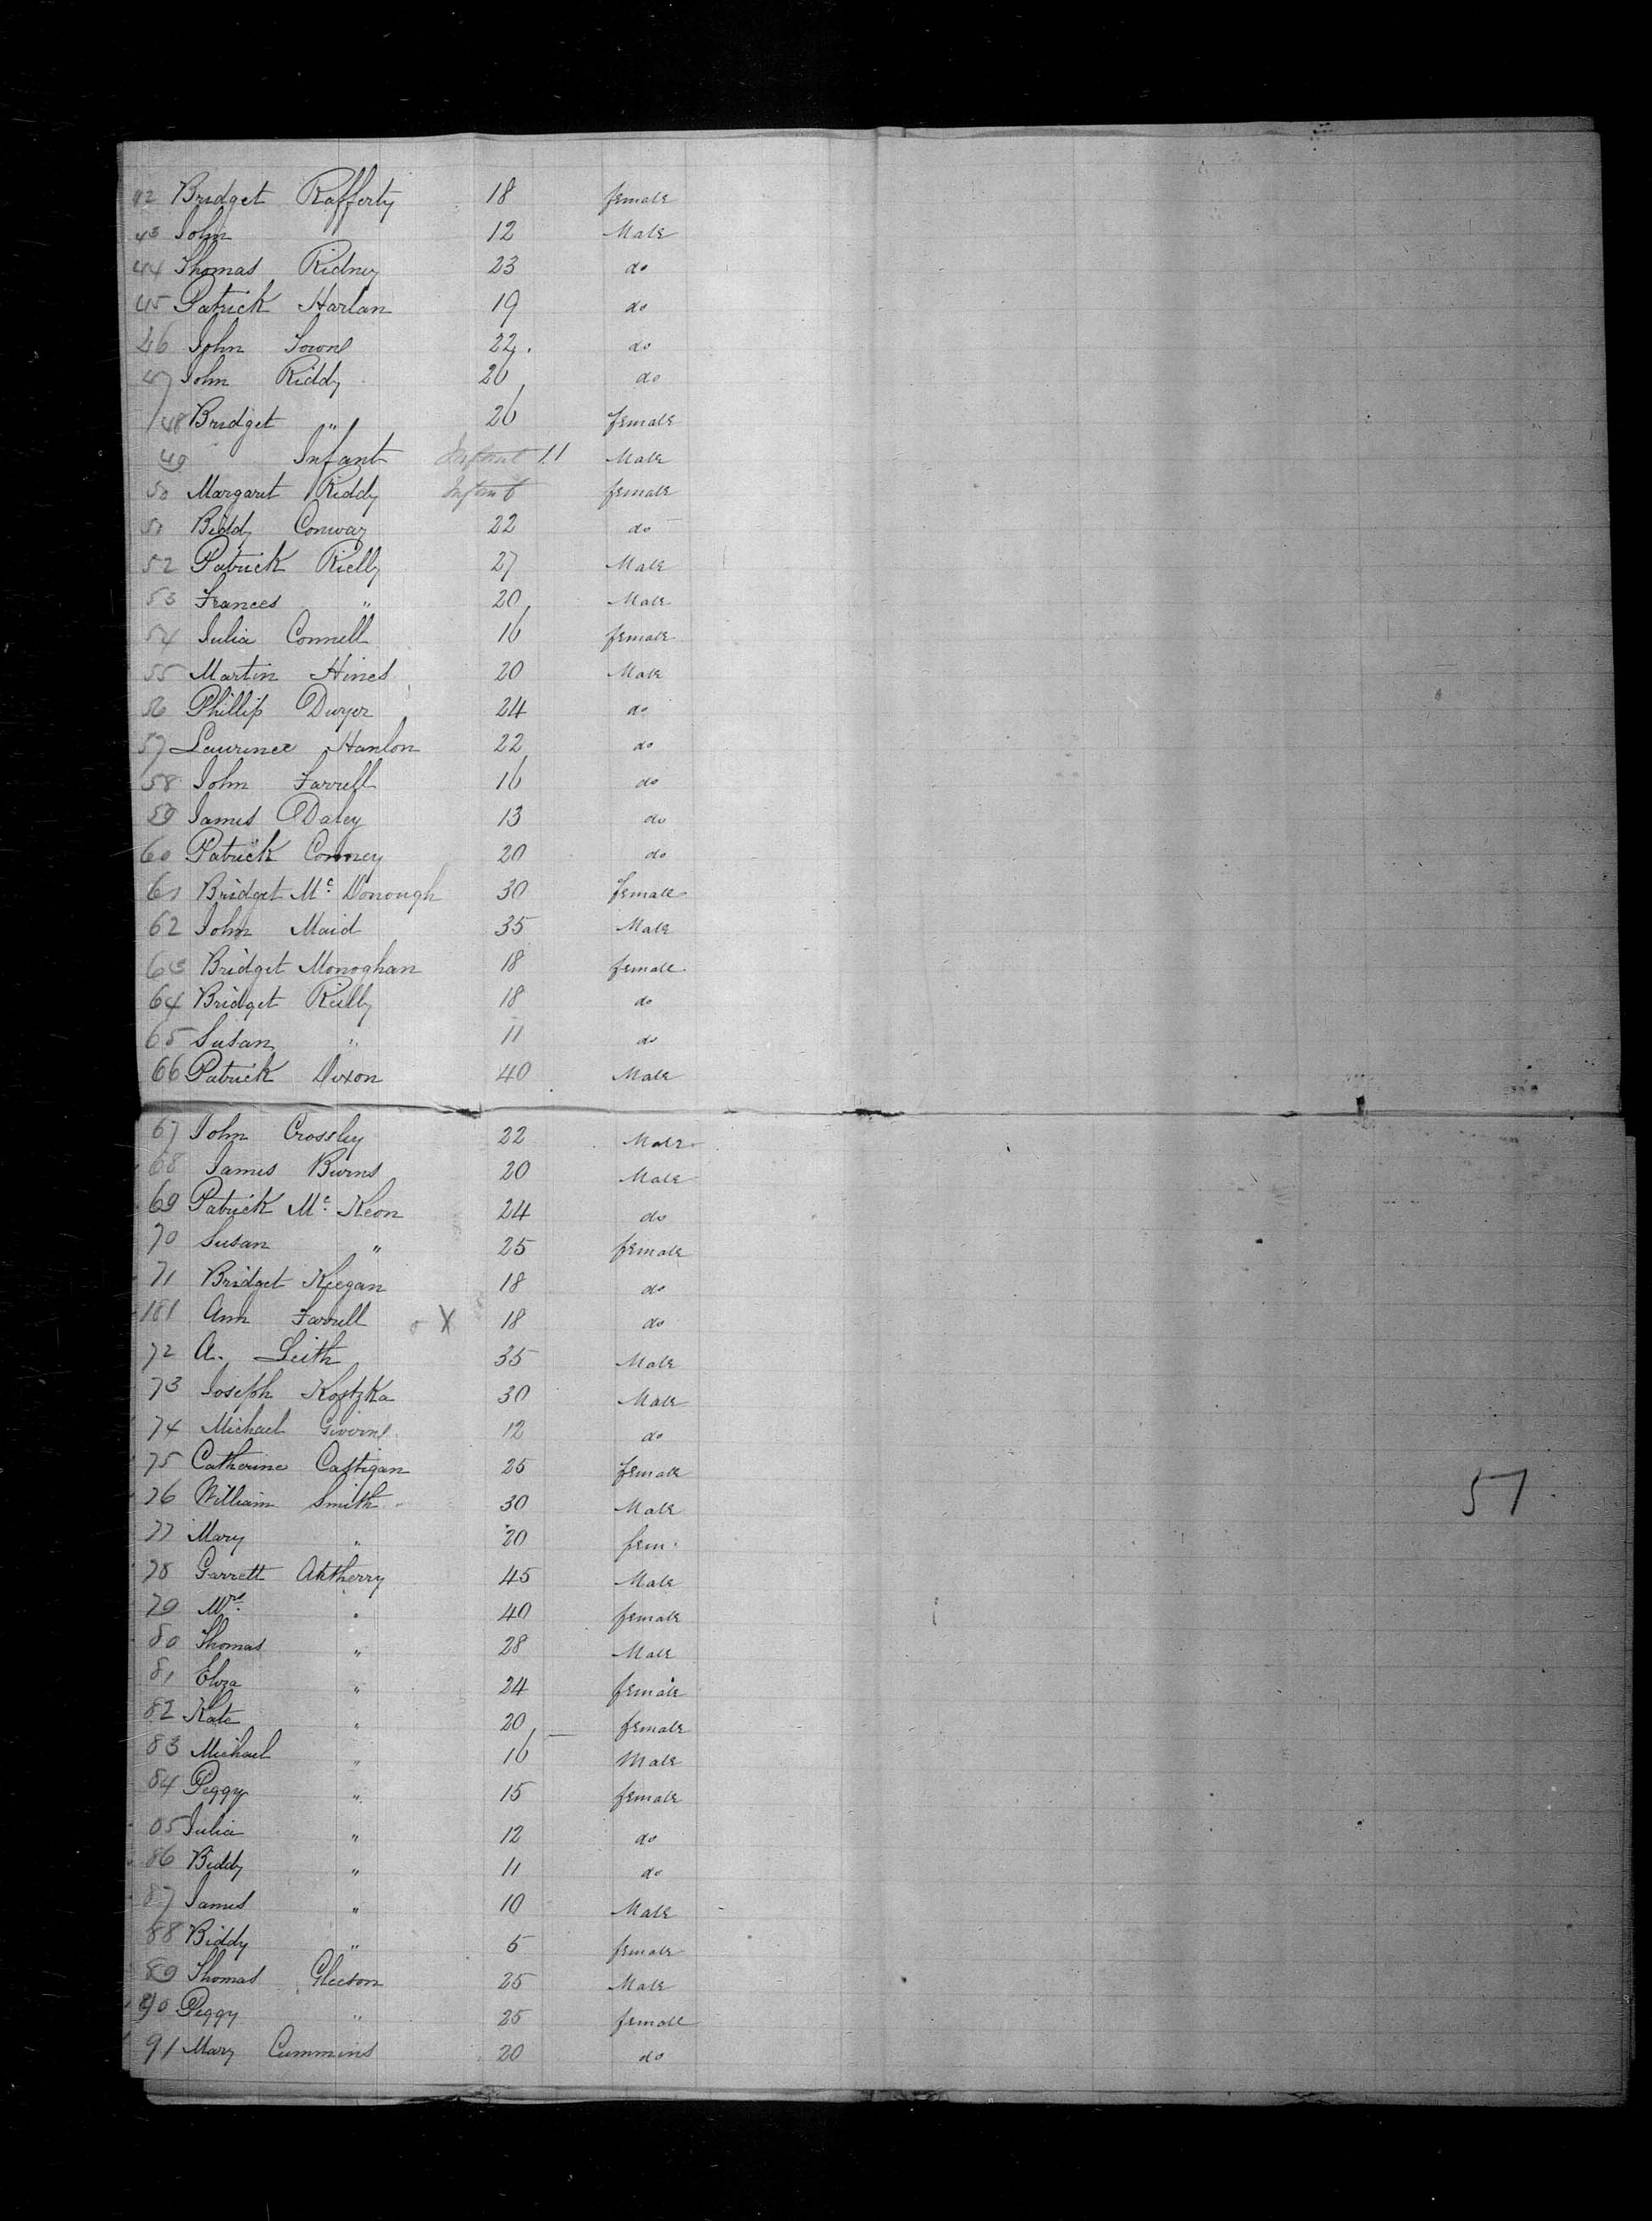 42 Bridget Rafferty 18 female
43 John 12 Male
44 Thomas Ridney 23 do
45 Patrick Harlan 19 do
46 John 22 do
47 John Riddy 26 do
48 Bridget " 26 female
49 Infant Infant 11 Male
50 Margaret Riddy Infant female
51 Biddy Conway 22 do
52 Patrick Rielly 27 Male
53 Frances " 20 Male
54 Julia Connell 16 female
55 Martin Hines 20 Male
56 Phillip Dwyer 24 do
57 Laurince Hanlon 22 do
58 John Farrell 16 do
59 James Daley 13 do
60 Patrick Conney 20 do
61 Bridget Mc Donough 30 female
62 John Maid 35 Male
63 Bridget Monoghan 18 female
64 Bridget Rielly 18 do
65 Susan " 11 do
66 Patrick Dixon 40 Male
67 John Crossley 22 Male
68 James Burns 20 Male
69 Patrick Mc Keon 24 do
70 Susan " 25 female
71 Bridget Keegan 18 do
181 Ann Farrell X 18 do
72 A. Leith 35 Male
73 Joseph Kostzka 30 Male
74 Michael 12 do
75 Catherine Castigan 25 female
76 William Smith 30 Male
57
77 Mary " 20 fem
78 Garrett Aktherry 45 Male
79 Mrs " 40 female
80 Thomas " 28 Male
81 Eliza " 24 female
82 Kate " 20 female
83 Michael " 16 Male
84 Peggy " 15 female
85 Julia " 12 do
86 Biddy " 11 do
87 James " 10 Male
88 Biddy " 5 female
89 Thomas Gleeson 25 Male
90 Peggy " 25 female
91 Mary Cummins 20 do